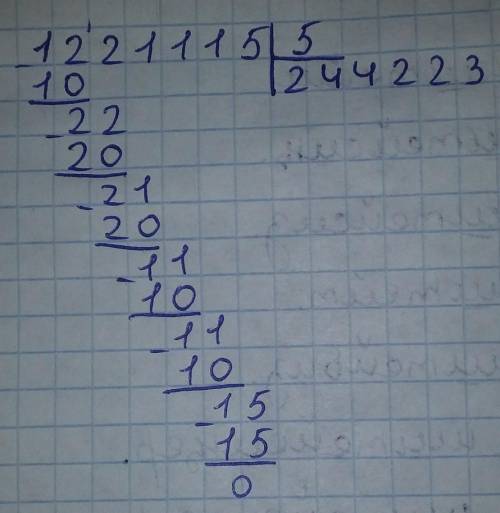 1221115 | 5
10 244223
-22
20
-21
20
-11
10
-11
10
-15
15
0